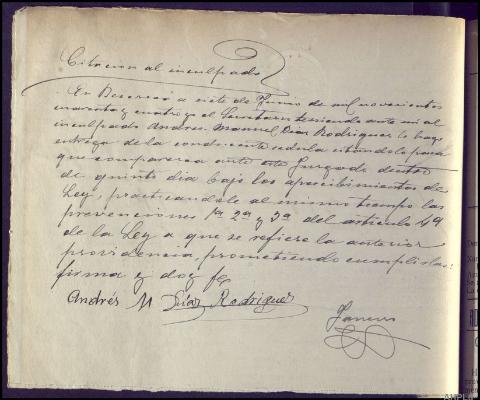 Citacion al inculpado
En Becerreá a siete de Junio de mil novecientos
cuarenta y cuatro yo el Secretario teniendo ante mi al
inculpado Andres Manuel Diaz Rodriguez le hago
entrega de la conducente cedula citandole para
que comparezca ante este Juzgado dentro
de quinto dia bajo los apercibimientos de
Ley, practicandole al mismo tiempo las
prevenciones 1ª 2ª y 3ª del articulo 49
de la Ley a que se refiere la anterior
providencia prometiendo cumplirlas:
firma y doy fe
Andrés M Diaz Rodriguez